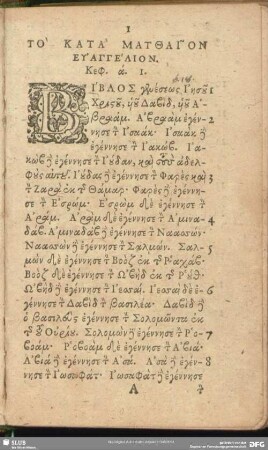 1
ΤΟ' ΚΑΤΑ' ΜΑΤΘΑΙ͂ΟΝ
ΕΥ'ΑΓΓΕ'ΛΙΟΝ.
Κεφ. ά. 1.
ΒΙ'ΒΛΟΣ γενέσεως Ἰησοῦ
Χριστοῦ, υἱοῦ Δαβὶδ, υἱοῦ Ἀ-
βραάμ. Ἀβραὰμ ἐγέν- 2
νησε τὸν Ἰσαάκ. Ἰσαὰκ δὲ
ἐγέννησε τὸν Ἰακώβ. Ἰα-
κὼβ δὲ ἐγέννησε τὸν Ἰούδαν, καὶ τοὺς ἀδελ-
φοὺς αὐτοῦ. Ἰούδας δὲ ἐγέννησε τὸν Φαρὲς καὶ 3
τὸν Ζαρὰ ἐκ τῆς Θάμαρ. Φαρὲς δὲ ἐγέννη-
σε τὸν Ἐσρώμ. Ἐσρὼμ δὲ ἐγέννησε τὸν
Ἀράμ. Ἀρὰμ δὲ ἐγέννησε τὸν Ἀμινα- 4
δάβ. Ἀμιναδὰβ δὲ ἐγέννησε τὸν Ναασσών.
Ναασσὼν δὲ ἐγέννησε τὸν Σαλμών. Σαλ- 5
μὼν δὲ ἐγέννησε τὸν Βοὸζ ἐκ τῆς Ῥαχάβ.
Βοὸζ δὲ ἐγέννησε τὸν Ὠβὴδ ἐκ τῆς Ῥούθ.
Ὠβὴδ δὲ ἐγέννησε τὸν Ἰεσσαί. Ἰεσσαὶ δὲ ἐ- 6
γέννησε τὸν Δαβὶδ τὸν βασιλέα. Δαβὶδ δὲ
ὁ βασιλεὺς ἐγέννησε τὸν Σολομῶντα ἐκ
τῆς τοῦ Οὐρίου. Σολομὼν δὲ ἐγέννησε τὸν Ῥο- 7
βοάμ. Ῥοβοὰμ δὲ ἐγέννησε τὸν Ἀβιά.
Ἀβιὰ δὲ ἐγέννησε τὸν Ἀσά. Ἀσὰ δὲ ἐγέν- 8
νησε τὸν Ἰωσαφάτ. Ἰωσαφὰτ δὲ ἐγέννησε
A τὸν
SLUB
DFG